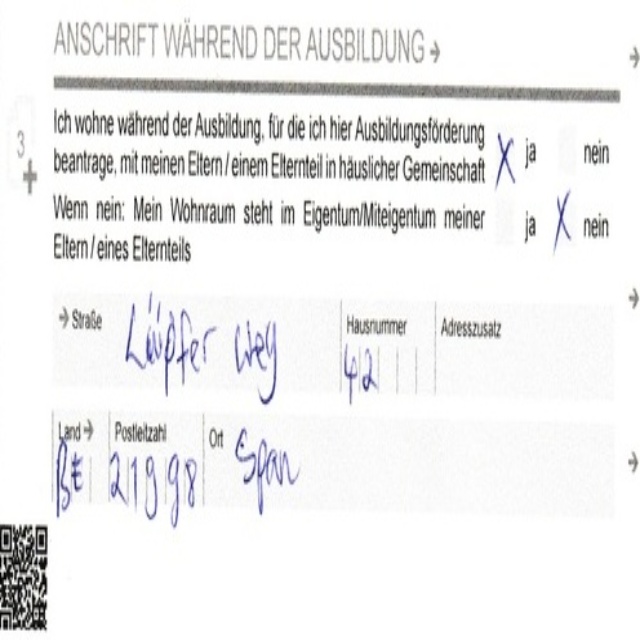 ANSCHRIFT WÄHREND DER AUSBILDUNG →
3
Ich wohne während der Ausbildung, für die ich hier Ausbildungsförderung
beantrage, mit meinen Eltern / einem Elternteil in häuslicher Gemeinschaft X ja nein
Wenn nein: Mein Wohnraum steht im Eigentum/Miteigentum meiner
Eltern / eines Elternteils ja X nein
→ Straße Hausnummer Adresszusatz
Weg 42
Land → Postleitzahl Ort
BE 21998 Span